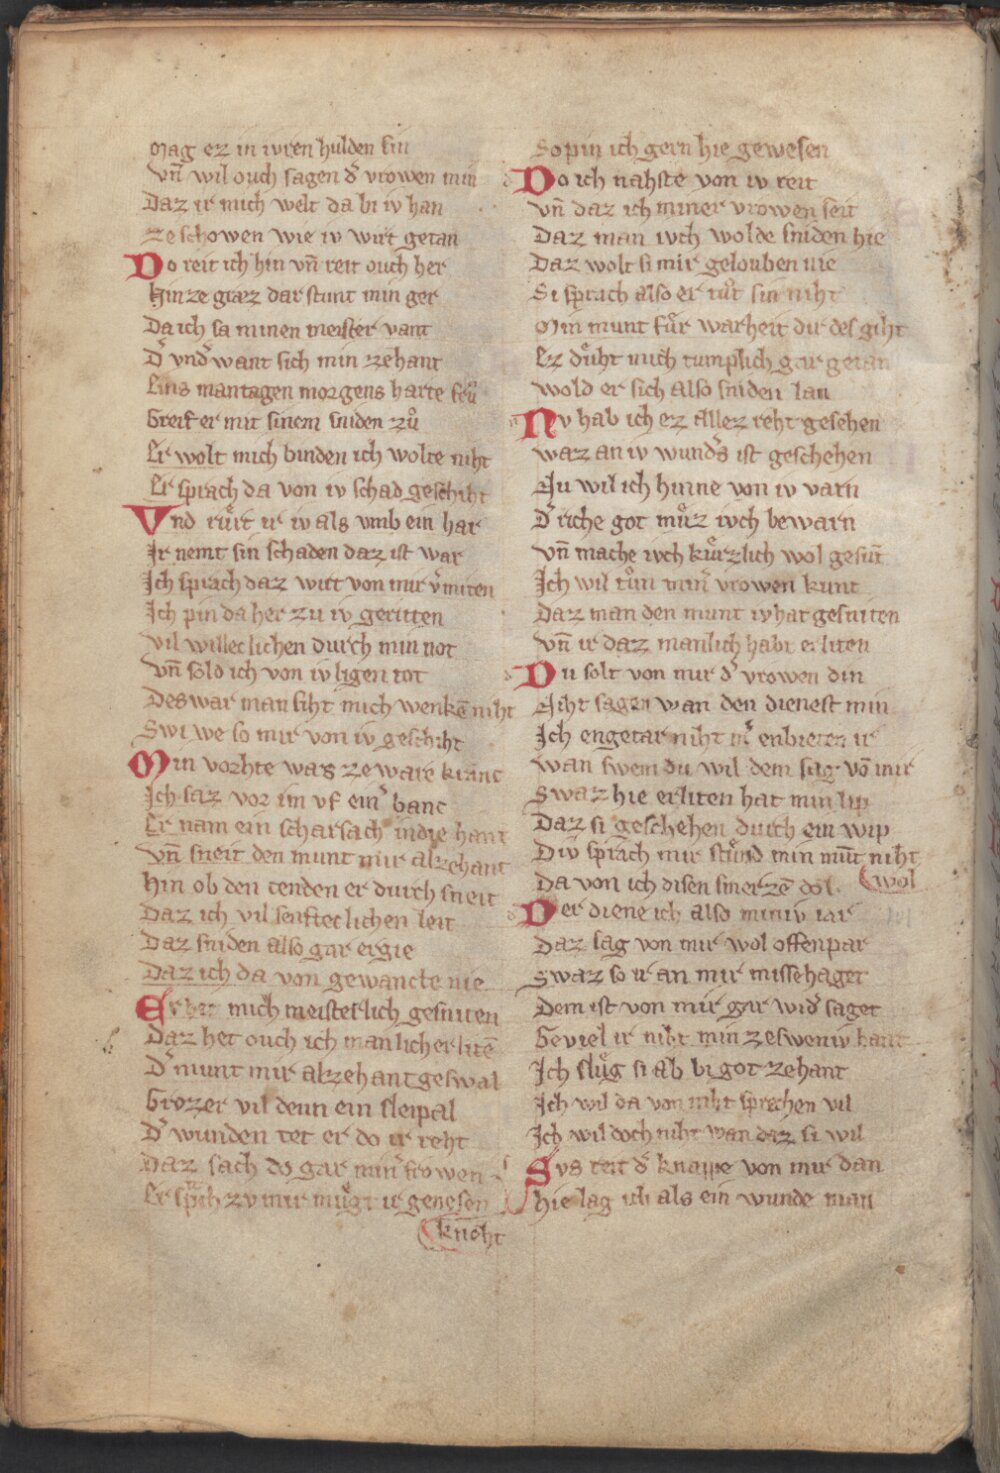 Mag ez in iwren hulden sin
vn̄ wil ouch sagen d̾ vrowen min
Daz ir mich welt da bi iv han
ze schowen wie iv wirt getan
Do reit ich hin vn̄ reit ouch her
hinze graz dar stunt min ger
Da ich sa minen meister vant
D̾ vnd̾want sich min zehant
Eins mantagen morgens harte frů
Greif er mit sinem sniden zů
Er wolt mich binden ich wolte niht
Er sprach da von iv schad geschiht
Vnd růrt ir iv als vmb ein har
Ir nemt sin schaden daz ist war
Ich sprach daz wirt von mir v̾miten
Ich pin da her zu iv geriten
vil willeclichen durch min not
vn̄ sold ich von iv ligen tot
Deswar man siht mich wenkē niht
Swi we so mir von iv geschiht
Min vorhte was zeware kranc
Ich saz vor im vf ein̾ banc
Er nam ein scharsach in die hant
vn̄ sneit den munt mir alzehant
hin ob den cenden er durch sneit
Daz ich vil senfteclichen leit
Daz sniden also gar ergie
Daz ich da von gewancte nie
Er het mich meisterlich gesniten
Daz het ouch ich manlich erlitē
D̾ munt mir alzehant geswal
Grozer vil denn ein sleipal
D̾ wunden tet er do ir reht
Daz sach do gar min̾ frowen
kneht
Er sp̾ch zv mir mugt ir genesen
So pin ich gern hie gewesen
Do ich nahste von iv reit
vn̄ daz ich miner vrowen seit
Daz man iuch wolde sniden hie
Daz wolt si mir gelouben nie
Si sprach also er tůt sin niht
Min munt fůr warheit dir des giht
Ez důht mich tumplich gar getan
wold er sich also sniden lan
Nv hab ich ez allez reht gesehen
waz an iv wund̾s ist geschehen
Nu wil ich hinne von iv varn
D̾ riche got můz iuch bewarn
vn̄ mache iuch kůrzlich wol gesūt
Ich wil tůn min̾ vrowen kunt
Daz man den munt iv hat gesniten
vn̄ ir daz manlich habt erliten
Du solt von mir d̾ vrowen din
Niht sagen wan den dienest min
Ich engetar niht m̾ enbieten ir
wan swem du wil dem sag vō mir
Swaz hie erliten hat min lip
Daz si geschehen durch ein wip
Div sprach mir stůnd min mūt niht
wol
Da von ich disen smerzē dol
Der diene ich also miniv iar
Daz sag von mir wol offenpar
Swaz so ir an mir missehaget
Dem ist von mir gar wid̾saget
Geviel ir niht min zesweniv hant
Ich slůg si ab bi got zehant
Ich wil da von niht sprechen vil
Ich wil doch niht wan daz si wil
Sus reit d̾ knappe von mir dan
hie lag ich als ein wunde man